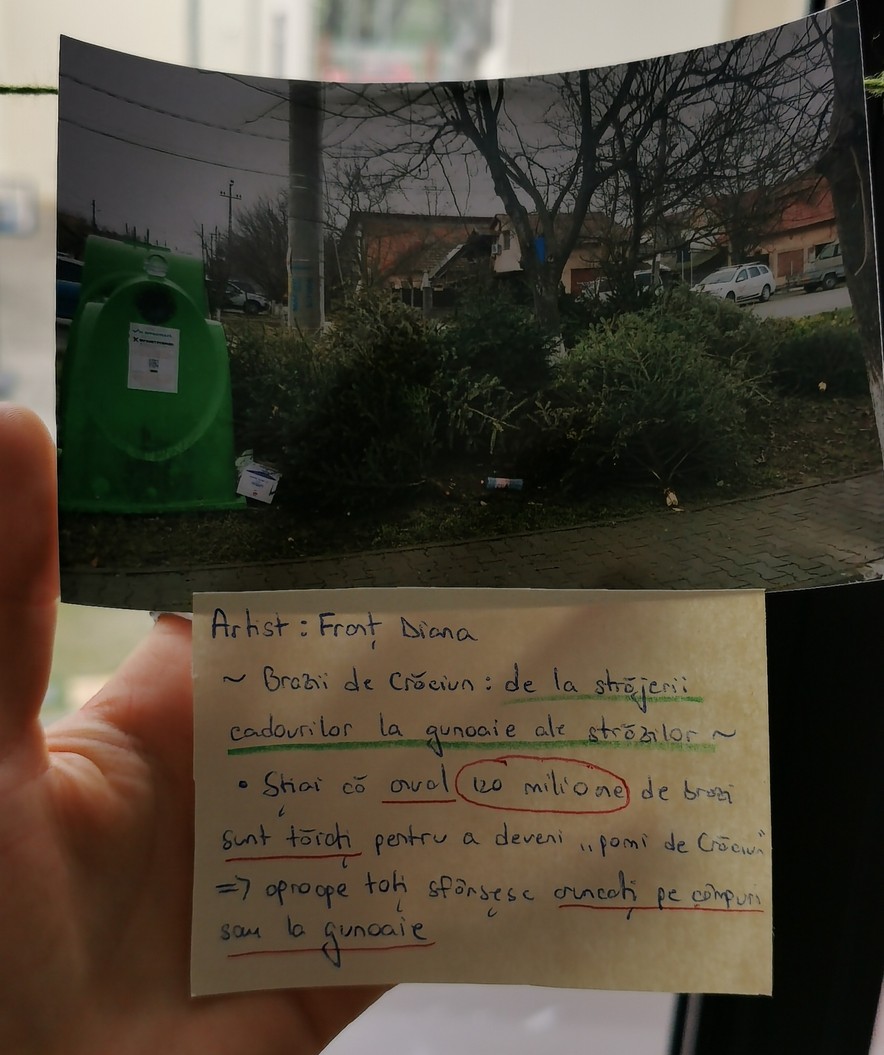 Artist : Fronț Diana
~ Brazii de Crăciun : de la străjerii
cadourilor la gunoaie ale străzilor ~
• Știai că anual 120 milioane de brazi
sunt tăiați pentru a deveni „pomi de Crăciun"
=> aproape toți sfârșesc aruncați pe câmpuri
sau la gunoaie